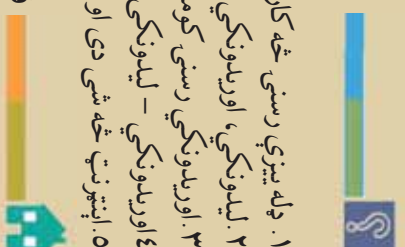 ۱. ډله ییزې رسنۍ څه کار
۲. لیدونکي، اوریدونکي
۳. اوریدونکي رسنۍ کوم
٤ اوریدونکي – لیدونکي
٥. انټرنټ څه شی دی او